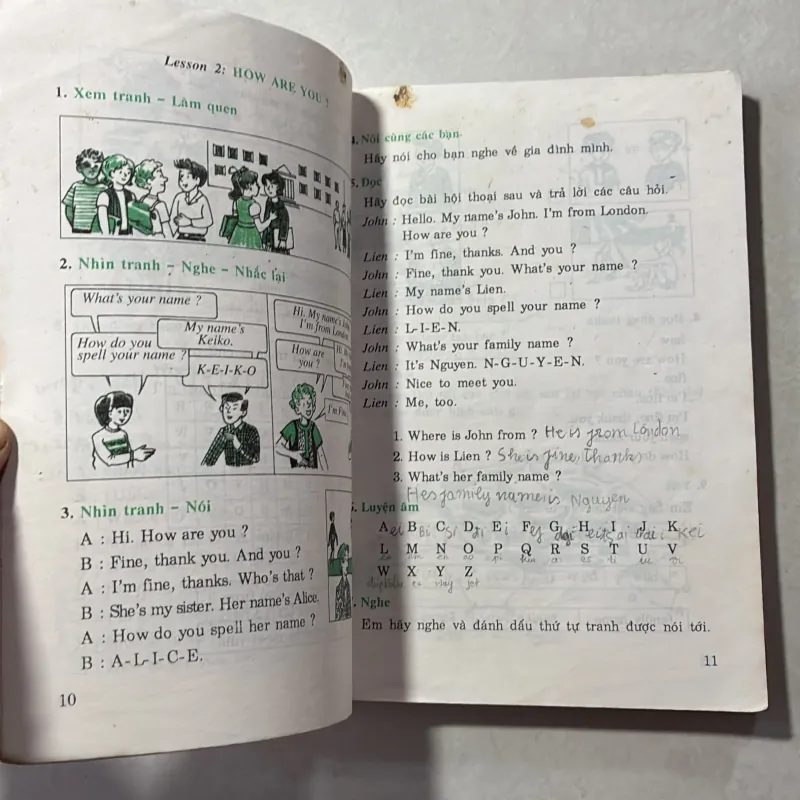 Lesson 2: HOW ARE YOU ?
1. Xem tranh – Làm quen
2. Nhìn tranh – Nghe – Nhắc lại
What's your name ?
My name's
Keiko.
How do you
spell your name ?
K-E-I-K-O
Hi. My name's
I'm from London.
How are
you ?
I'm Fine
3. Nhìn tranh – Nói
A : Hi. How are you ?
B : Fine, thank you. And you ?
A : I'm fine, thanks. Who's that ?
B : She's my sister. Her name's Alice.
A : How do you spell her name ?
B : A-L-I-C-E.
10
4. Nói cùng các bạn
Hãy nói cho bạn nghe về gia đình mình.
5. Đọc
Hãy đọc bài hội thoại sau và trả lời các câu hỏi.
John : Hello. My name's John. I'm from London.
How are you ?
Lien : I'm fine, thanks. And you ?
John : Fine, thank you. What's your name ?
Lien : My name's Lien.
John : How do you spell your name ?
Lien : L-I-E-N.
John : What's your family name ?
Lien : It's Nguyen. N-G-U-Y-E-N.
John : Nice to meet you.
Lien : Me, too.
1. Where is John from ? He is from London
2. How is Lien ? She is fine, thanks
3. What's her family name ?
Hes family name is Nguyen
Luyện âm
A B C D E F G H I J K
L M N O P Q R S T U V
W X Y Z
Nghe
Em hãy nghe và đánh dấu thứ tự tranh được nói tới.
11